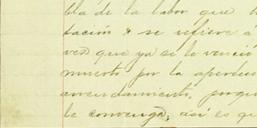 bla de la labor que h
tación & se refiere á
ved que ya se le venció
muerto por la apertu
arrendamiento, porque
le convenga, así es qu